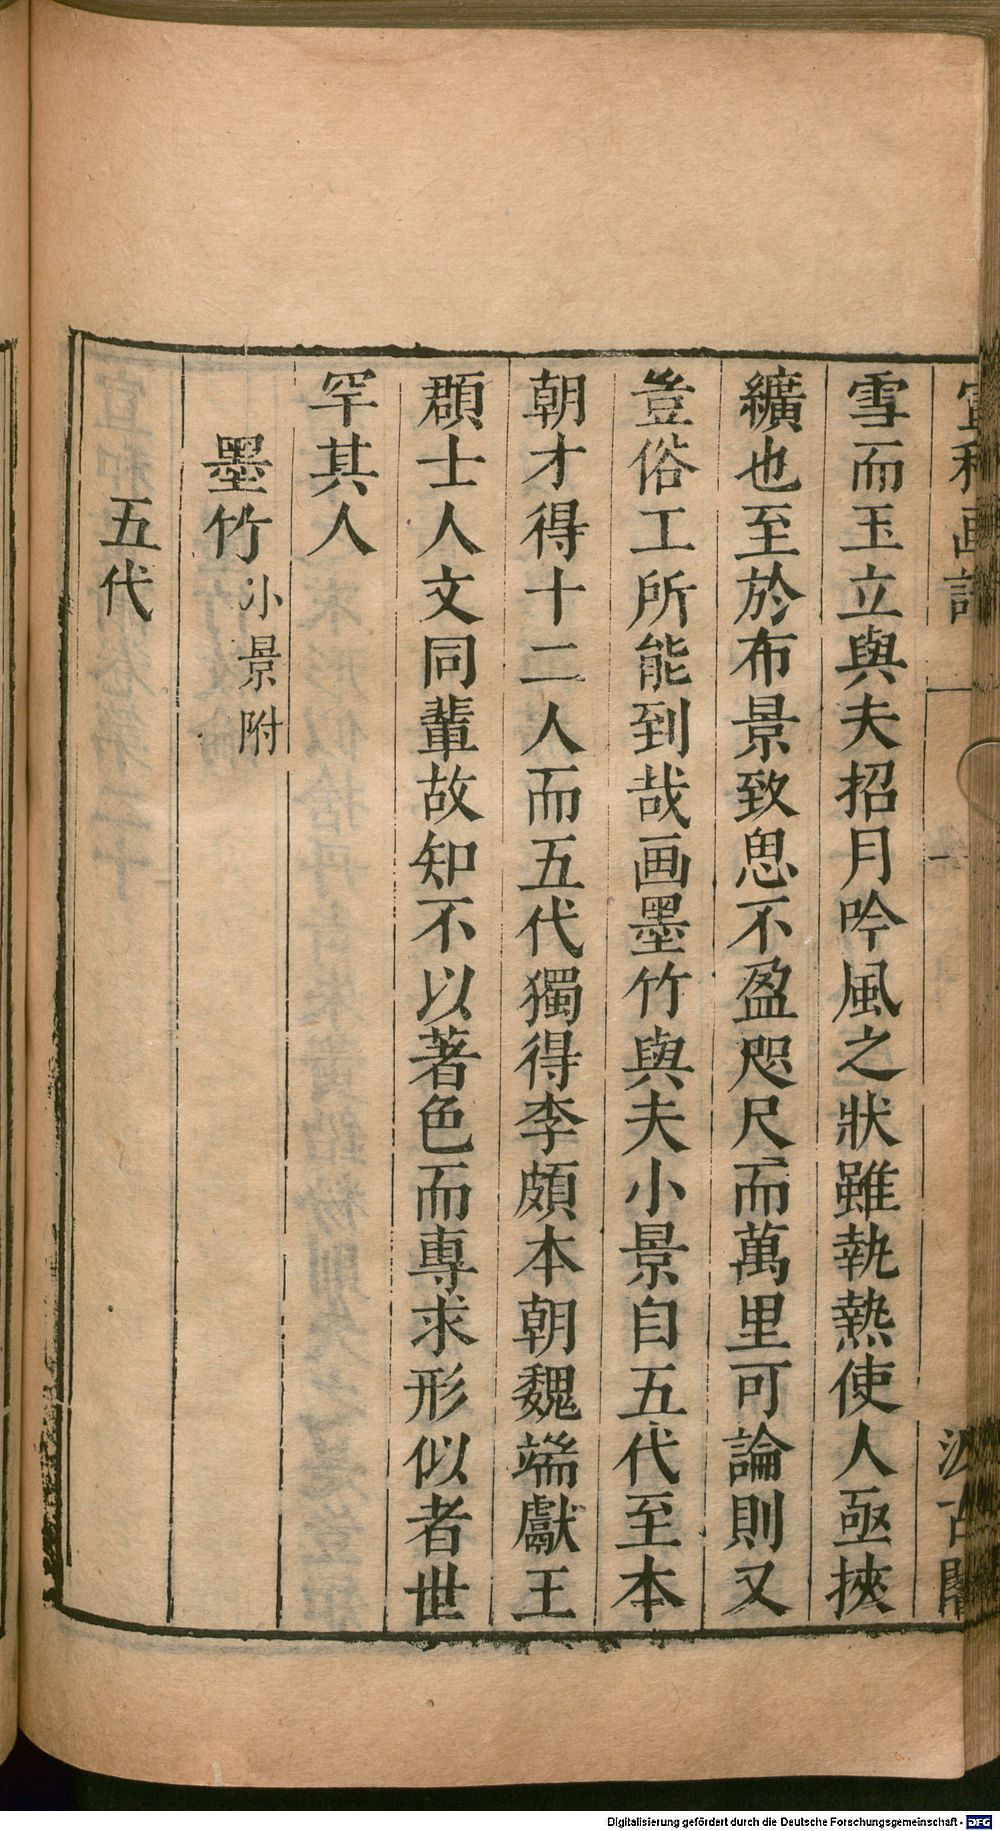 宣和画譜 一 汲古閣
雪而玉立與夫招月吟風之狀雖執熱使人亟挾
纊也至於布景致思不盈咫尺而萬里可論則又
豈俗工所能到哉画墨竹與夫小景自五代至本
朝才得十二人而五代獨得李頗本朝魏端獻王
頵士人文同輩故知不以著色而專求形似者世
罕其人
墨竹 小景附
五代
Digitalisierung gefördert durch die Deutsche Forschungsgemeinschaft - DFG